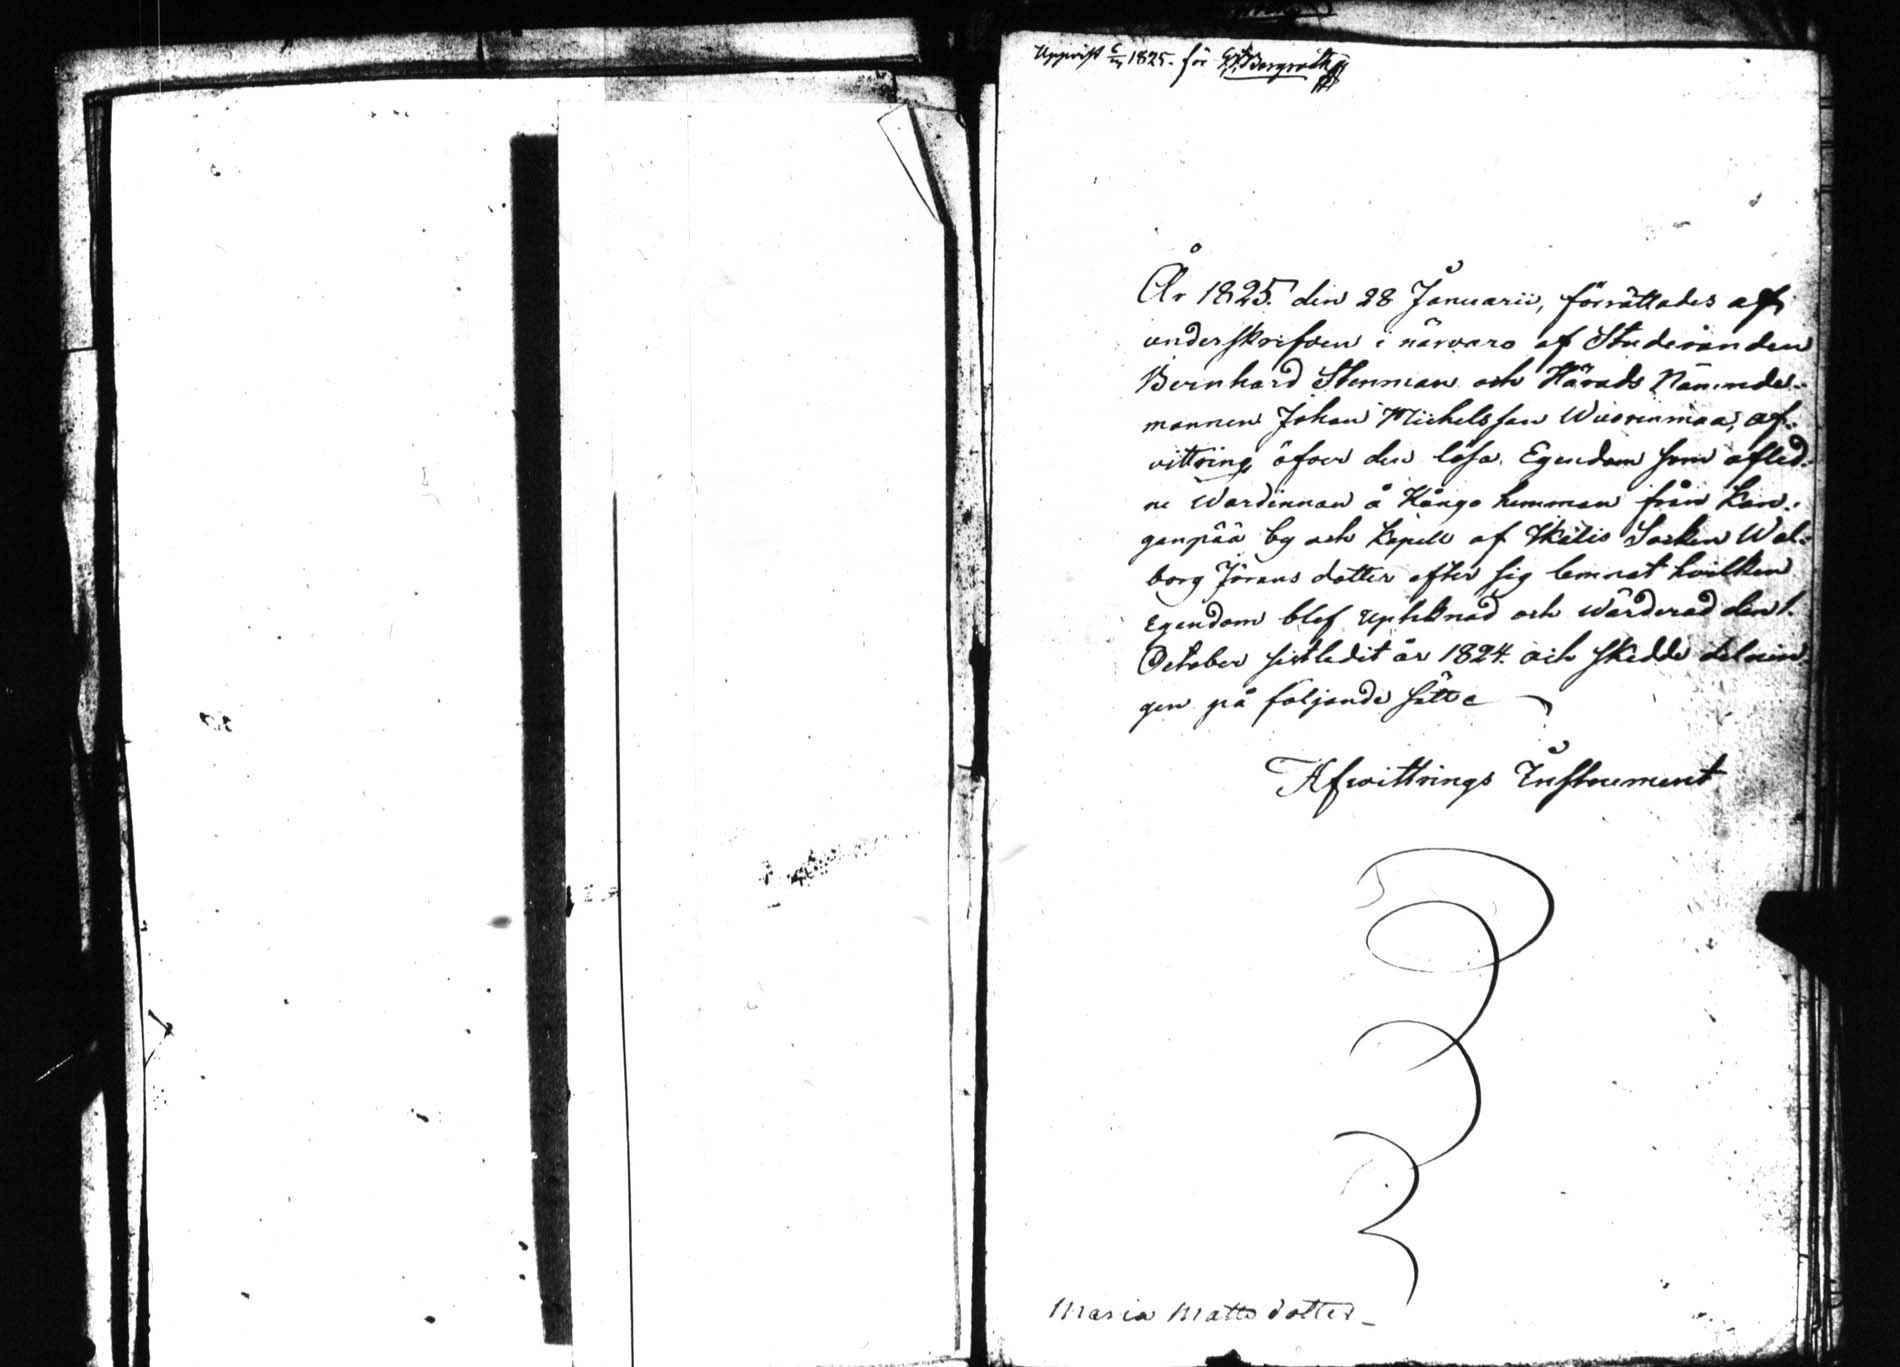 Uppvist 1825. för Bergroth
År 1825. den 28 Januarii, förrättades af
underskrifven i närvaro af Studeranden
Bernhard Stenman och Härads Nämnde-
mannen Johan Michelsson Wuorenmaa, af-
vittring öfver den lösa Egendom som afled-
ne Wärdinnan å Kångo hemman från Kan-
ganpää by och Kapell af Ikalis Socken Wal-
borg Jörans dotter efter sig lemnat hvilken
Egendom blef upteknad och wärderad den 1.
October sistledit år 1824. och skedde delnin-
gen på följande sätt
Afwittrings Instrument
Maria Matts dotter